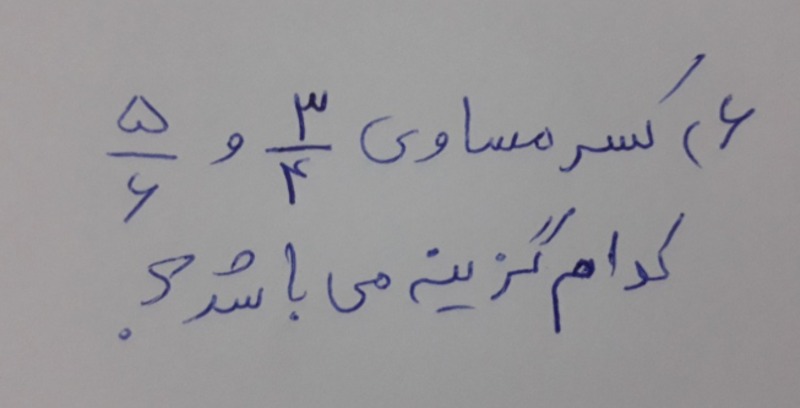 ۶) کسر مساوی ۳/۴ و ۵/۶
کدام گزینه می باشد؟